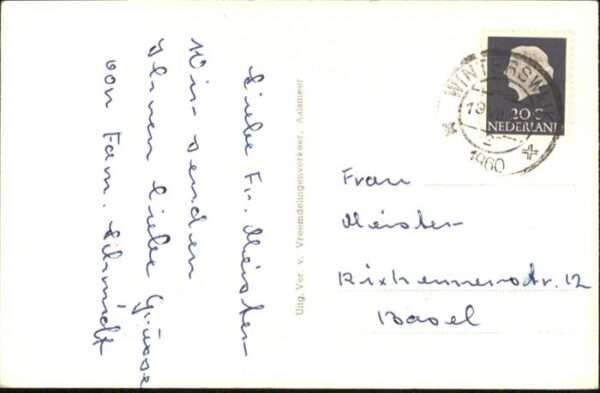 Liebe Fr. Meister
Wir senden
Ihnen liebe Grüsse
von Fam. Schmidt
Uitg. Ver. v. Vreemdelingenverkeer, Aalsmeer
WINTERSWIJK
19
1960
20 c
NEDERLAND
Frau
Meister
Rixheimerstr. 12
Basel